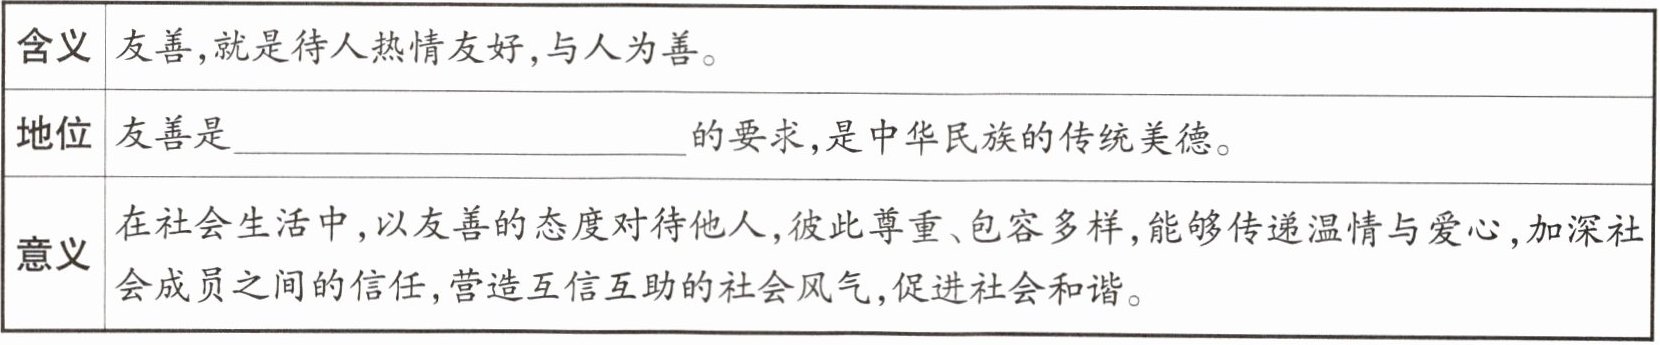 含义 友善,就是待人热情友好,与人为善。
地位 友善是____________________的要求,是中华民族的传统美德。
意义 在社会生活中,以友善的态度对待他人,彼此尊重、包容多样,能够传递温情与爱心,加深社
会成员之间的信任,营造互信互助的社会风气,促进社会和谐。